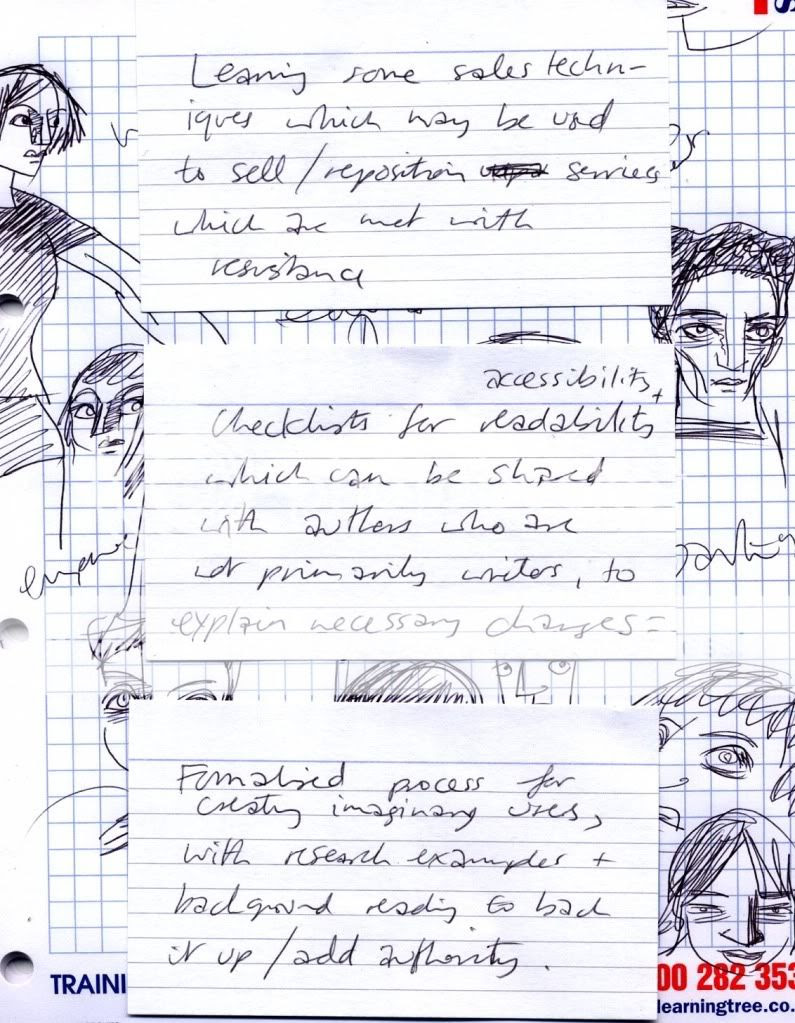 Learning some sales techn-
iques which may be used
to sell/reposition services
which are met with
resistance
accessibility +
Checklists for readability
which can be shared
with authors who are
not primarily writers, to
explain necessary changes =
Formalised process for
creating imaginary users,
with research examples +
background reading to back
it up/add authority.
TRAINI
00 282 353
learningtree.co.